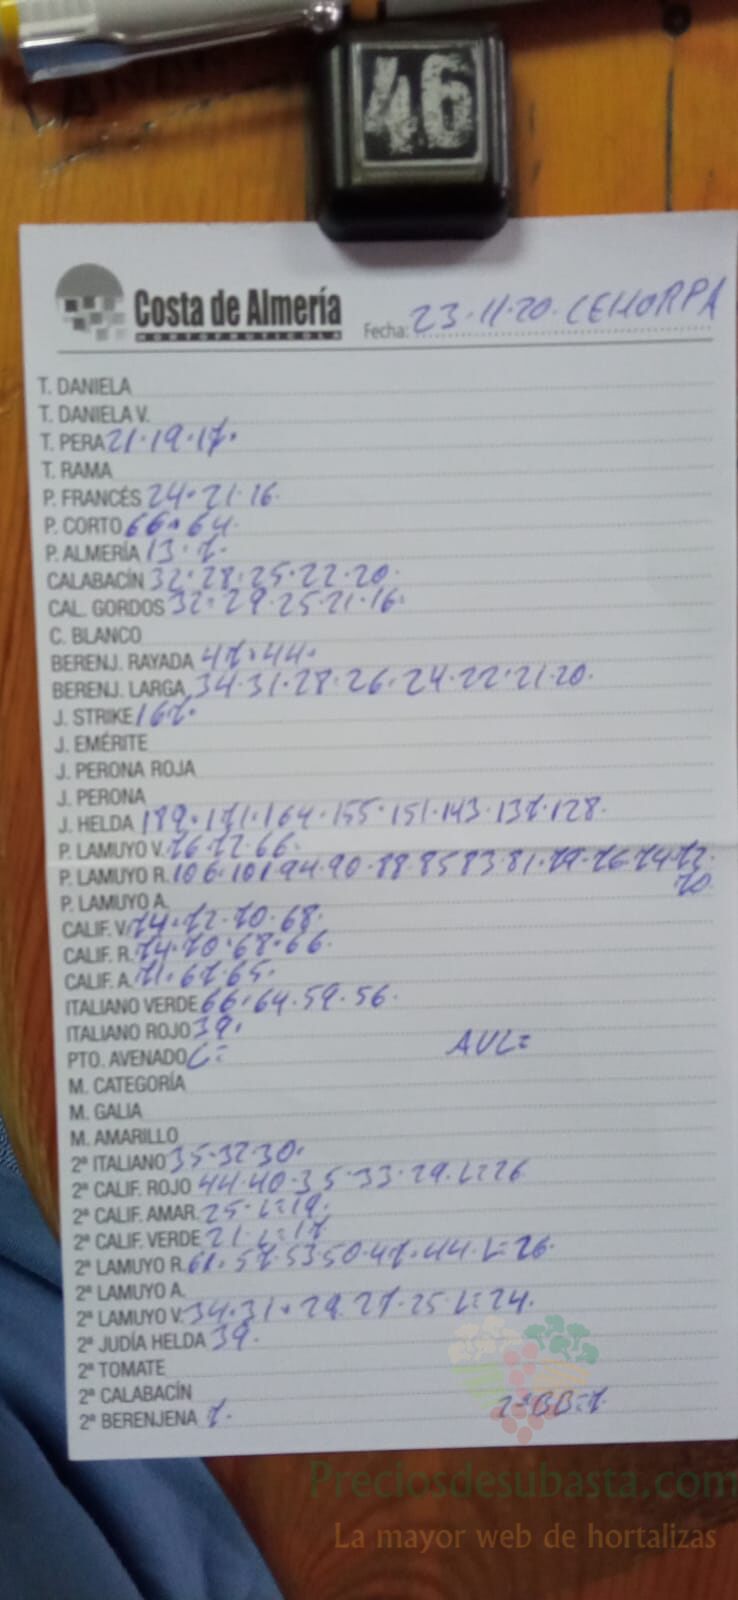 46
Costa de Almería
HORTOFRUTICOLA
Fecha: 23.11.20. CEHORPA
T. DANIELA
T. DANIELA V.
T. PERA 21.19.17.
T. RAMA
P. FRANCÉS 24.21.16.
P. CORTO 66.64.
P. ALMERÍA 13.7.
CALABACÍN 32.28.25.22.20.
CAL. GORDOS 32.29.25.21.16.
C. BLANCO
BERENJ. RAYADA 47.44.
BERENJ. LARGA 34.31.28.26.24.22.21.20.
J. STRIKE 167.
J. EMÉRITE
J. PERONA ROJA
J. PERONA
J. HELDA 189.171.164.155.151.143.137.128.
P. LAMUYO V. 76.72.66.
P. LAMUYO R. 106.101.94.90.88.85.83.81.79.76.74.72.
70
P. LAMUYO A.
CALIF. V. 74.72.70.68.
CALIF. R. 74.70.68.66.
CALIF. A. 71.67.65.
ITALIANO VERDE 66.64.59.56.
ITALIANO ROJO 39.
PTO. AVENADO C= AVL=
M. CATEGORÍA
M. GALIA
M. AMARILLO
2ª ITALIANO 35.32.30.
2ª CALIF. ROJO 44.40.35.33.29.L=26
2ª CALIF. AMAR. 25.L=19.
2ª CALIF. VERDE 21.L=17
2ª LAMUYO R. 61.57.53.50.47.44.L=26.
2ª LAMUYO A.
2ª LAMUYO V. 34.31.29.27.25 L=24.
2ª JUDÍA HELDA 39.
2ª TOMATE
2ª CALABACÍN
2ª BERENJENA 7. 2ªBB=7.
Preciosdesubasta.com
La mayor web de hortalizas